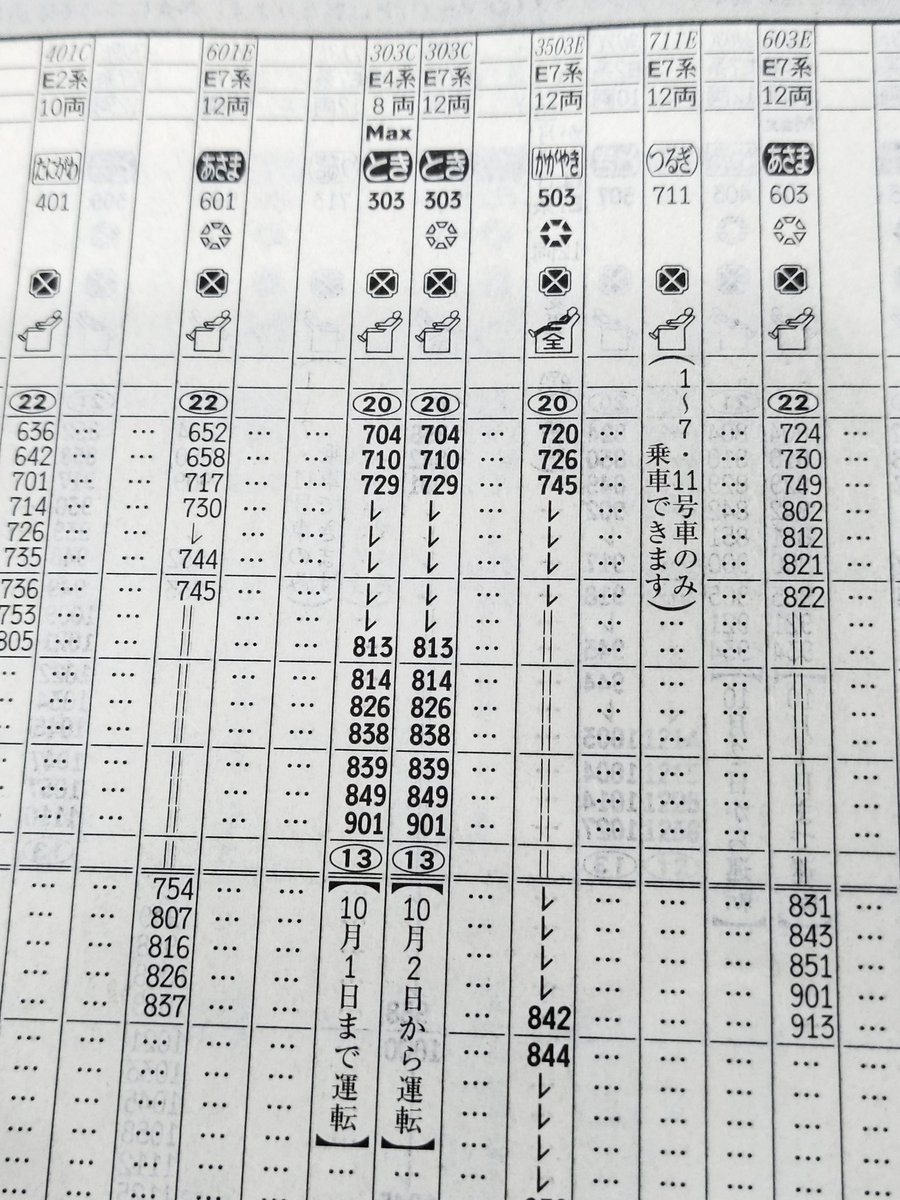 401C 601E 303C 303C 3503E 711E 603E
E2系 E7系 E4系 E7系 E7系 E7系 E7系
10両 12両 8両 12両 12両 12両 12両
Max
たにがわ あさま とき とき かがやき つるぎ あさま
401 601 303 303 503 711 603
全
22 22 20 20 20 22
636 … … 652 … … 704 704 … 720 724 …
642 … … 658 … … 710 710 … 726 730 …
701 … … 717 … … 729 729 … 745 749 …
714 … … 730 … … レ レ … レ 802 …
726 … … レ … … レ レ … レ 812 …
735 … … 744 … … レ レ … レ 821 …
736 … … 745 … … レ レ … レ 822 …
753 … … || … … レ レ … || … … || …
805 … … || … … 813 813 … || … … || …
… … … || … … 814 814 … || … … || …
… … … || … … 826 826 … || … … || …
… … … || … … 838 838 … || … … || …
… … … || … … 839 839 … || … … || …
… … … || … … 849 849 … || … … || …
… … … || … … 901 901 … || … … || …
13 13
… … … 754 … … … レ … … 831 …
… … … 807 … … … レ … … 843 …
… … … 816 … … … レ … … 851 …
… … … 826 … … … レ … … 901 …
… … … 837 … … … 842 … … 913 …
… … … … … … … 844 … … … …
(1~7 11号車のみ
乗車できます)
【10月1日まで運転】
【10月2日から運転】